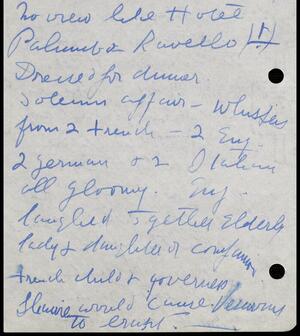 no view like Hotel
Palumbo Ravello (!)
Dressed for dinner
Solemn affair – Whispers
from 2 French – 2 Eng.
2 German & 2 Italian
all gloomy. Eng.
laughed together Elderly
lady & daughter or companion
French child & governess
would cause Vesuvius
to erupt.